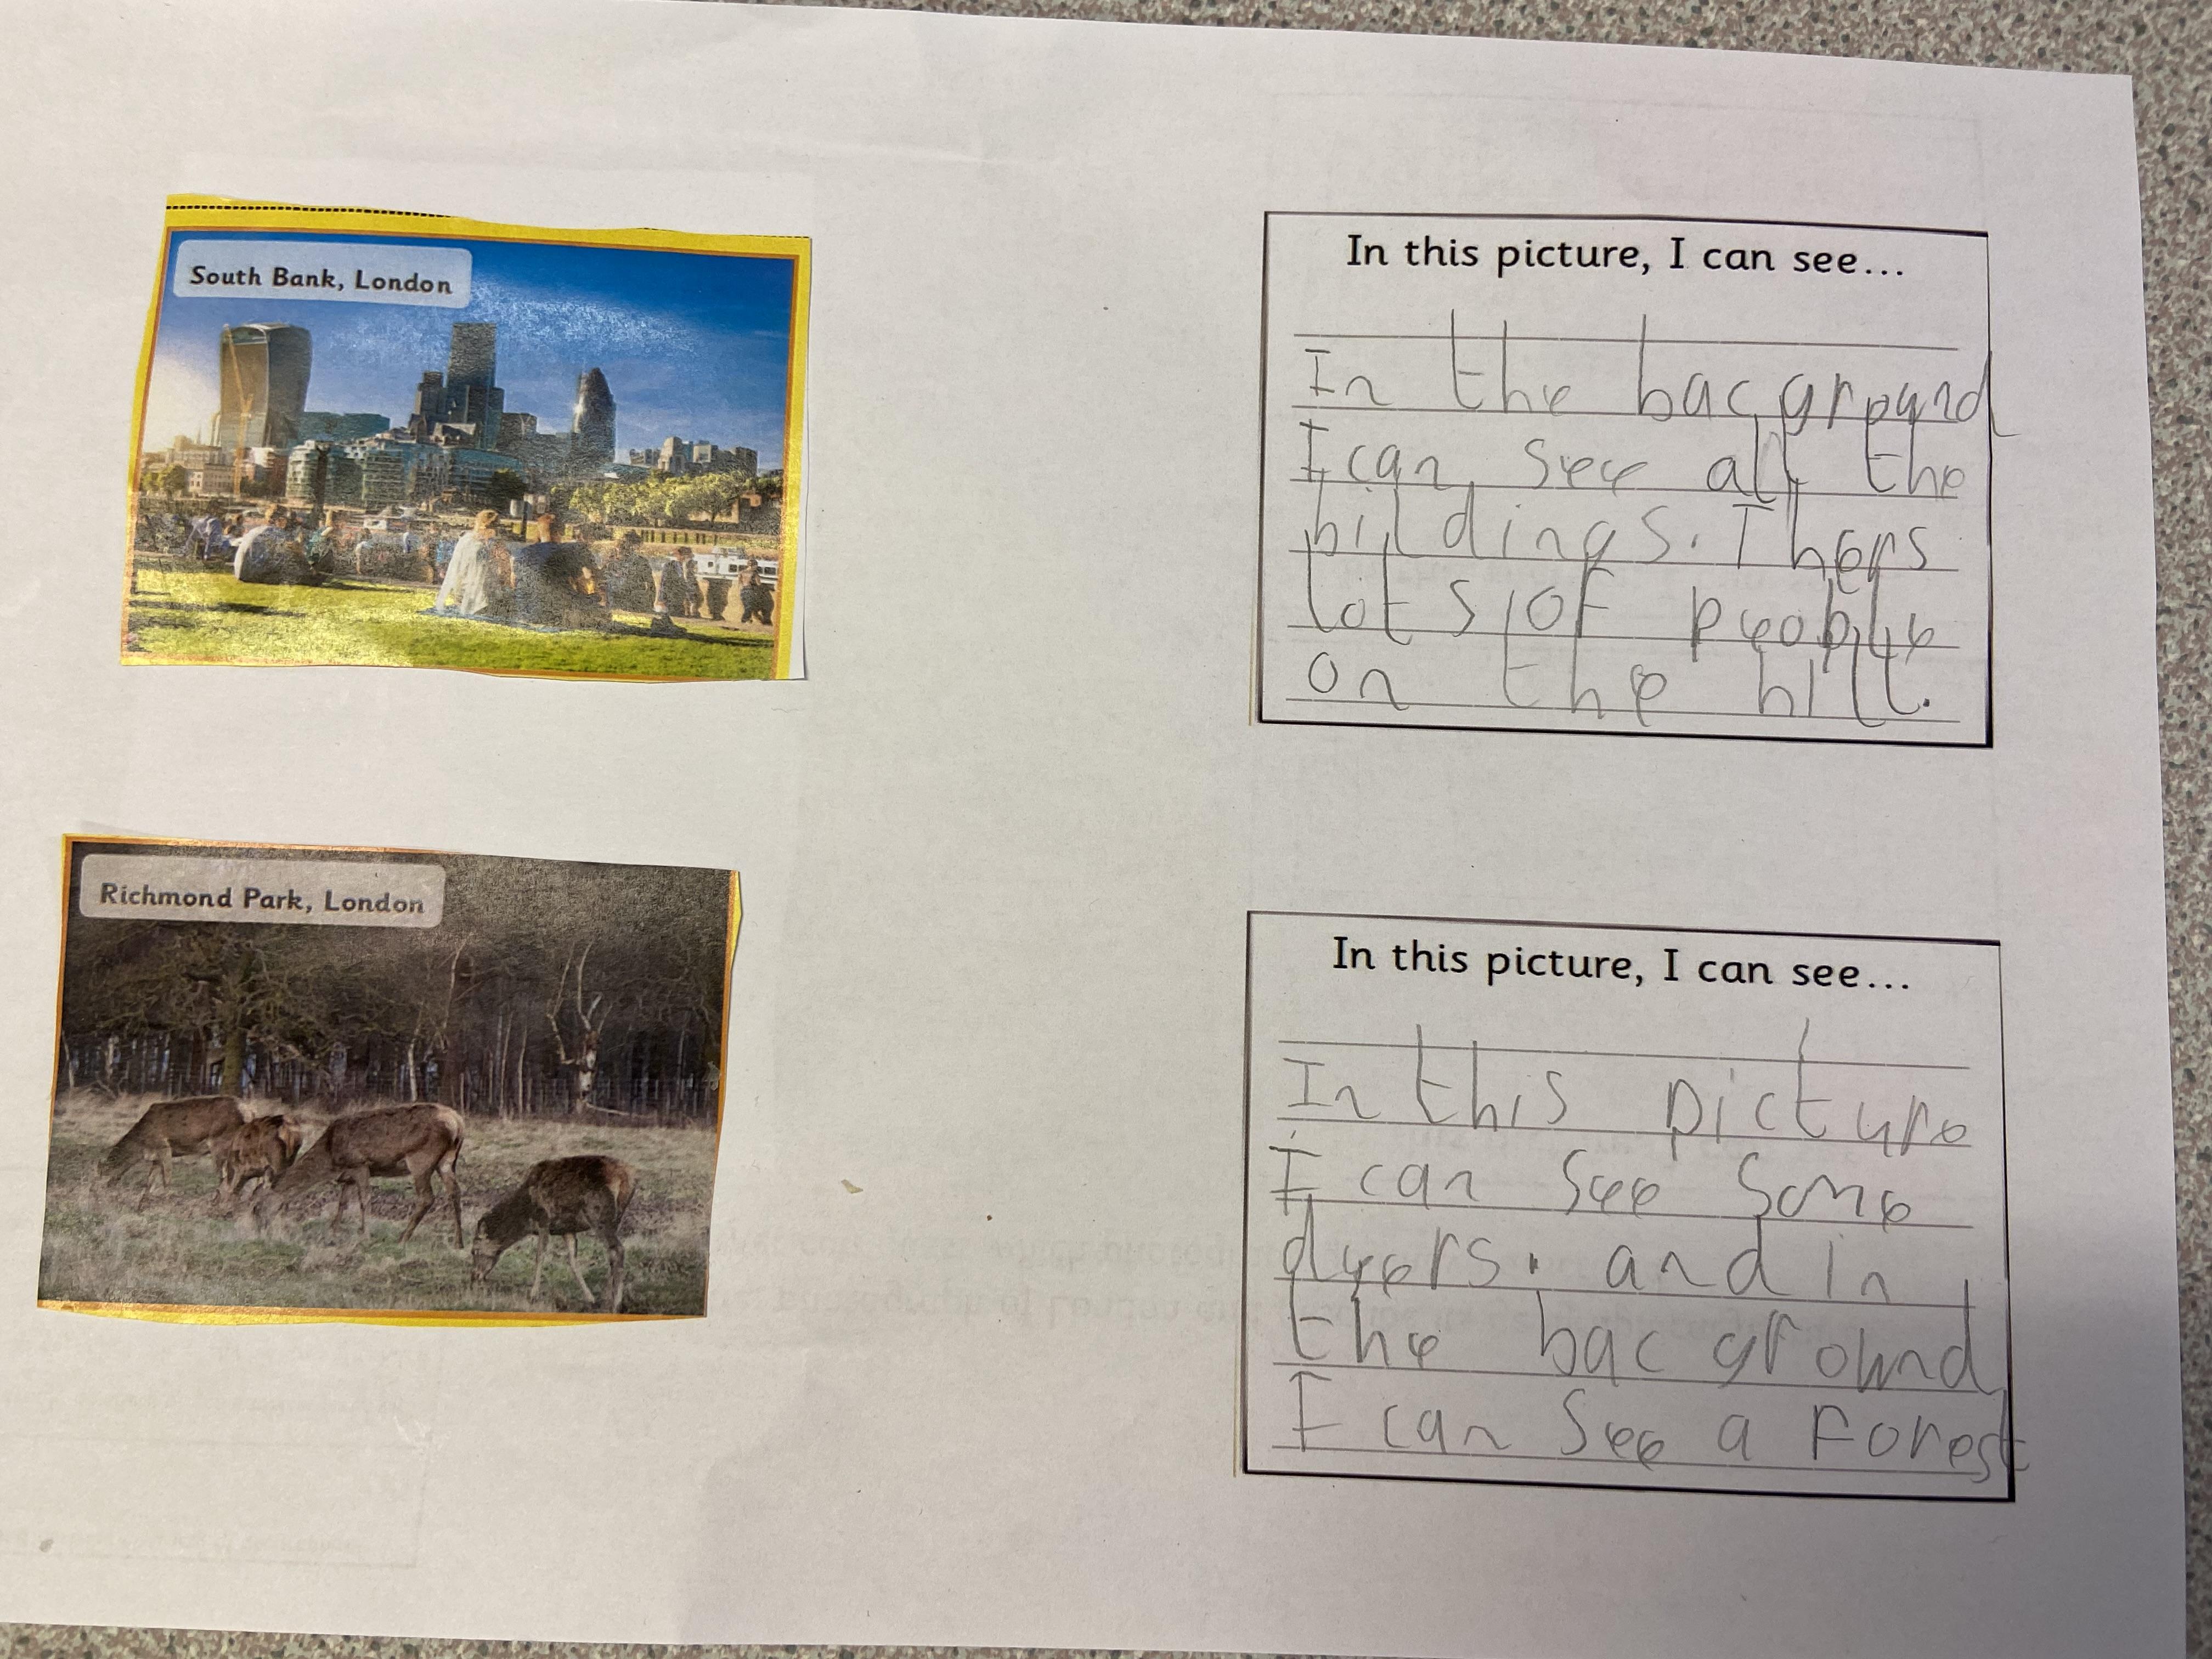 South Bank, London
In this picture, I can see...
In the bacground
I can see all the
bildings. Thers
lots of peoble
on the hill.
Richmond Park, London
In this picture, I can see...
In this picture
I can see some
deers. and in
the bacground
I can see a Forest